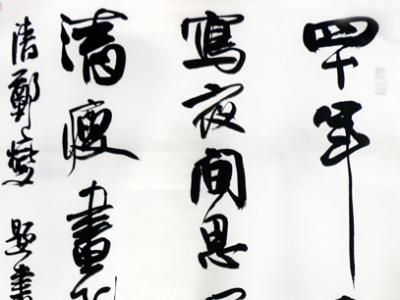 四十年
寫夜間思
清瘦畫
清鄭燮 題畫